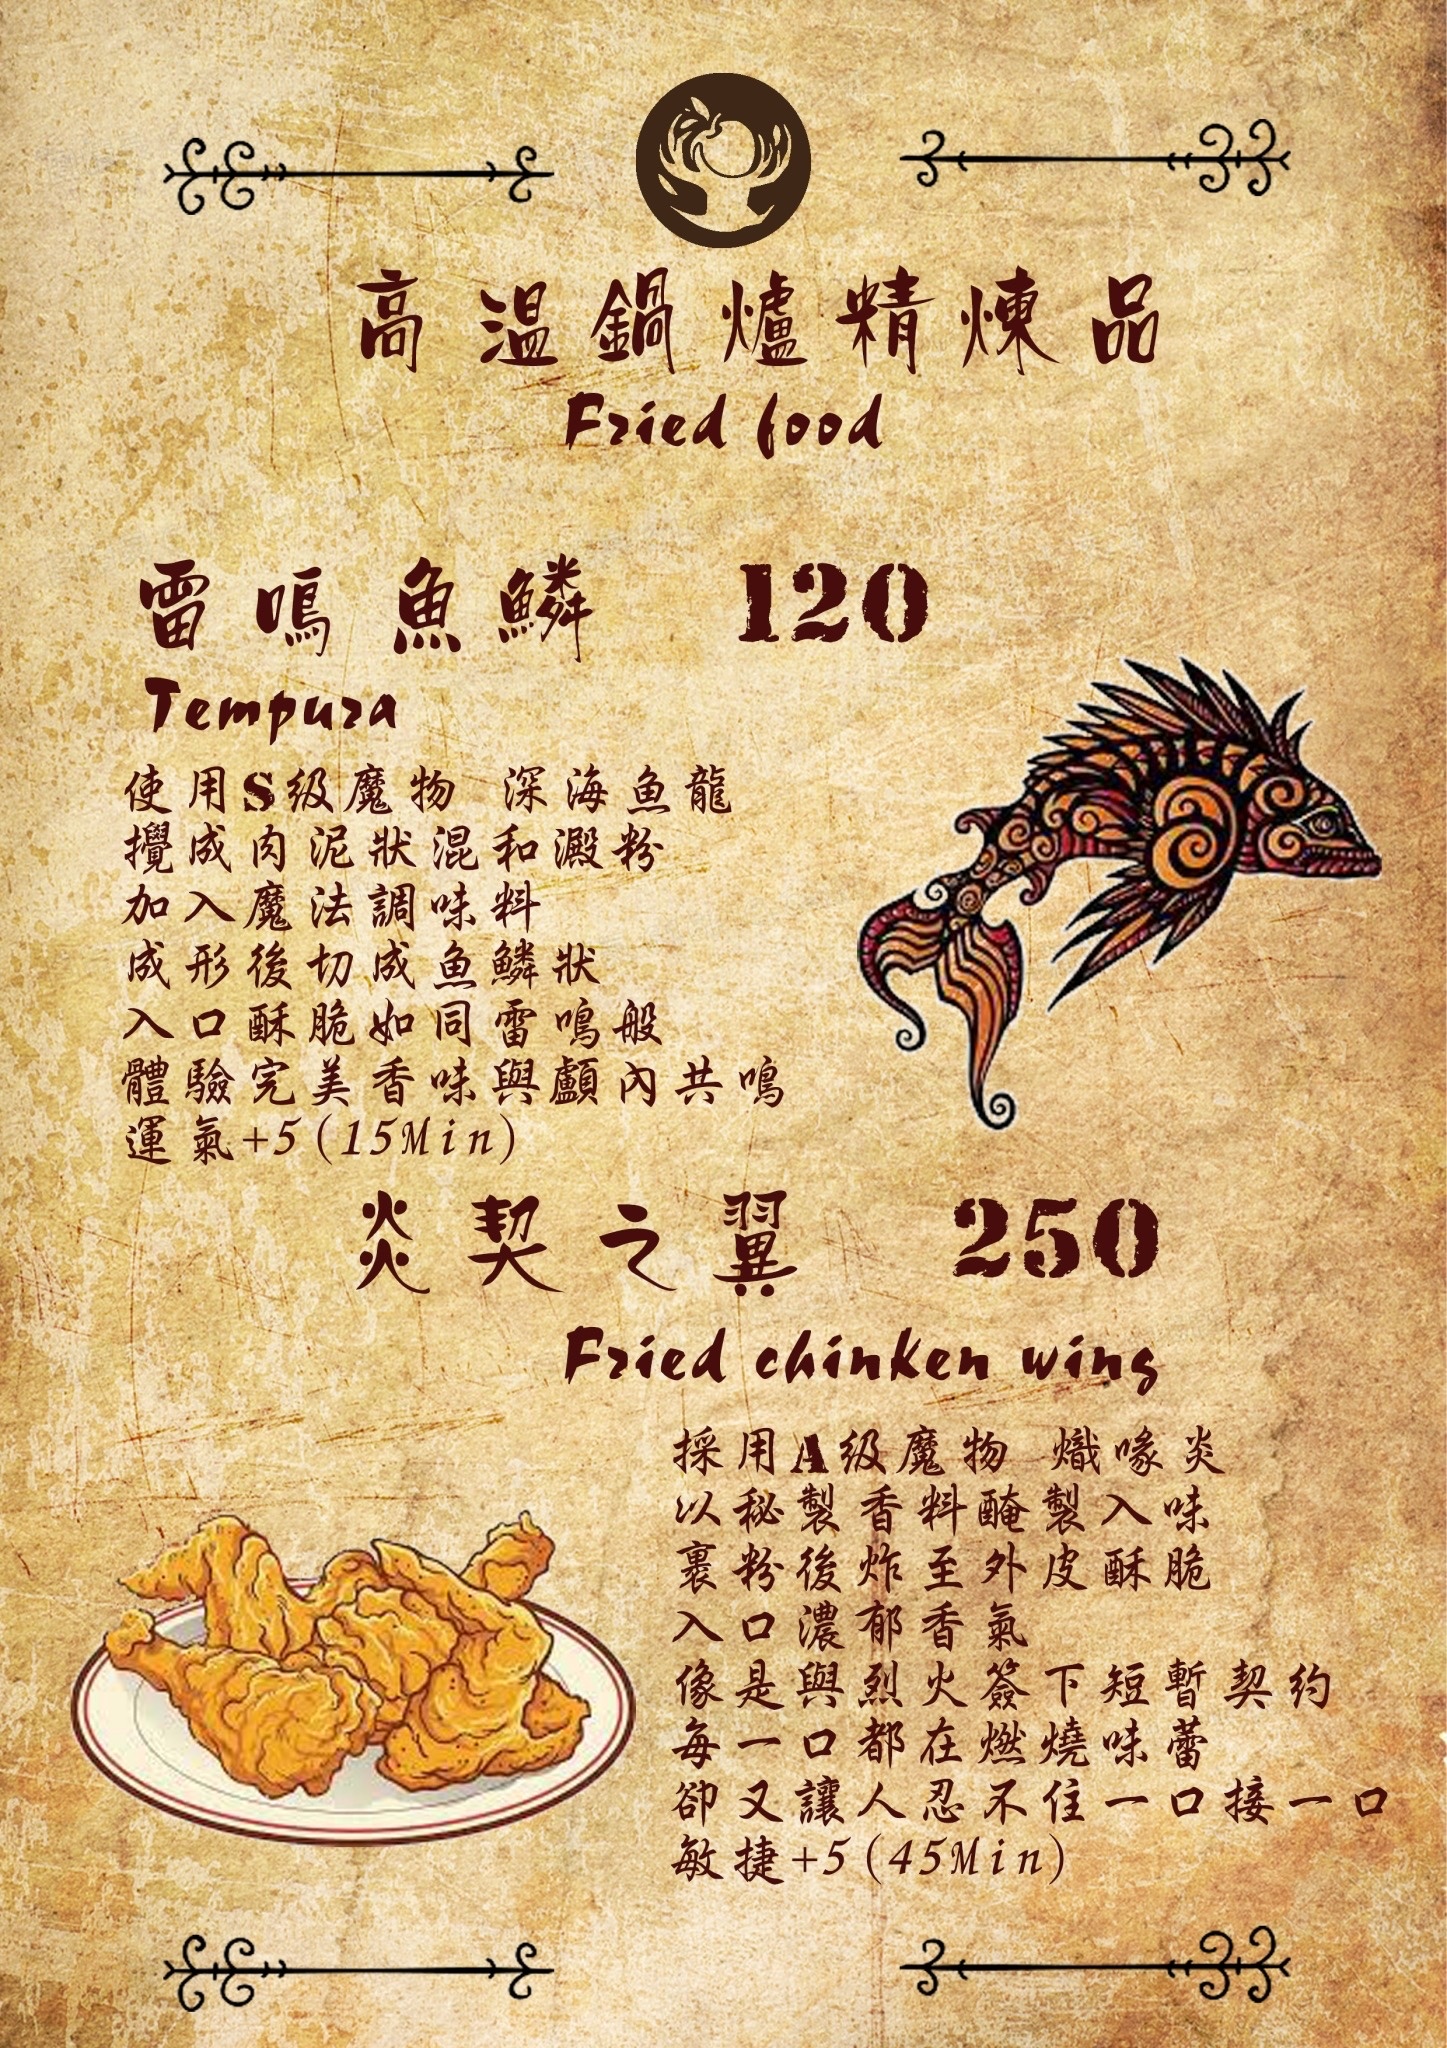 高溫鍋爐精煉品
Fried food
雷鳴魚鱗 120
Tempura
使用S级魔物 深海鱼龍
攪成肉泥狀混和澱粉
加入魔法調味料
成形後切成魚鱗狀
入口酥脆如同雷鳴般
體驗完美香味與顱內共鳴
運氣+5(15Min)
炎契之翼 250
Fried chinken wing
採用A级魔物 熾喙炎
以秘製香料醃製入味
裹粉後炸至外皮酥脆
入口濃郁香氣
像是與烈火簽下短暫契約
每一口都在燃燒味蕾
卻又讓人忍不住一口接一口
敏捷+5(45Min)